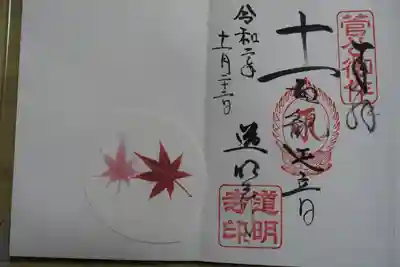 奉拝
菅公御作
十一面
道明寺
道明
寺印
令和二年
十一月二十三日